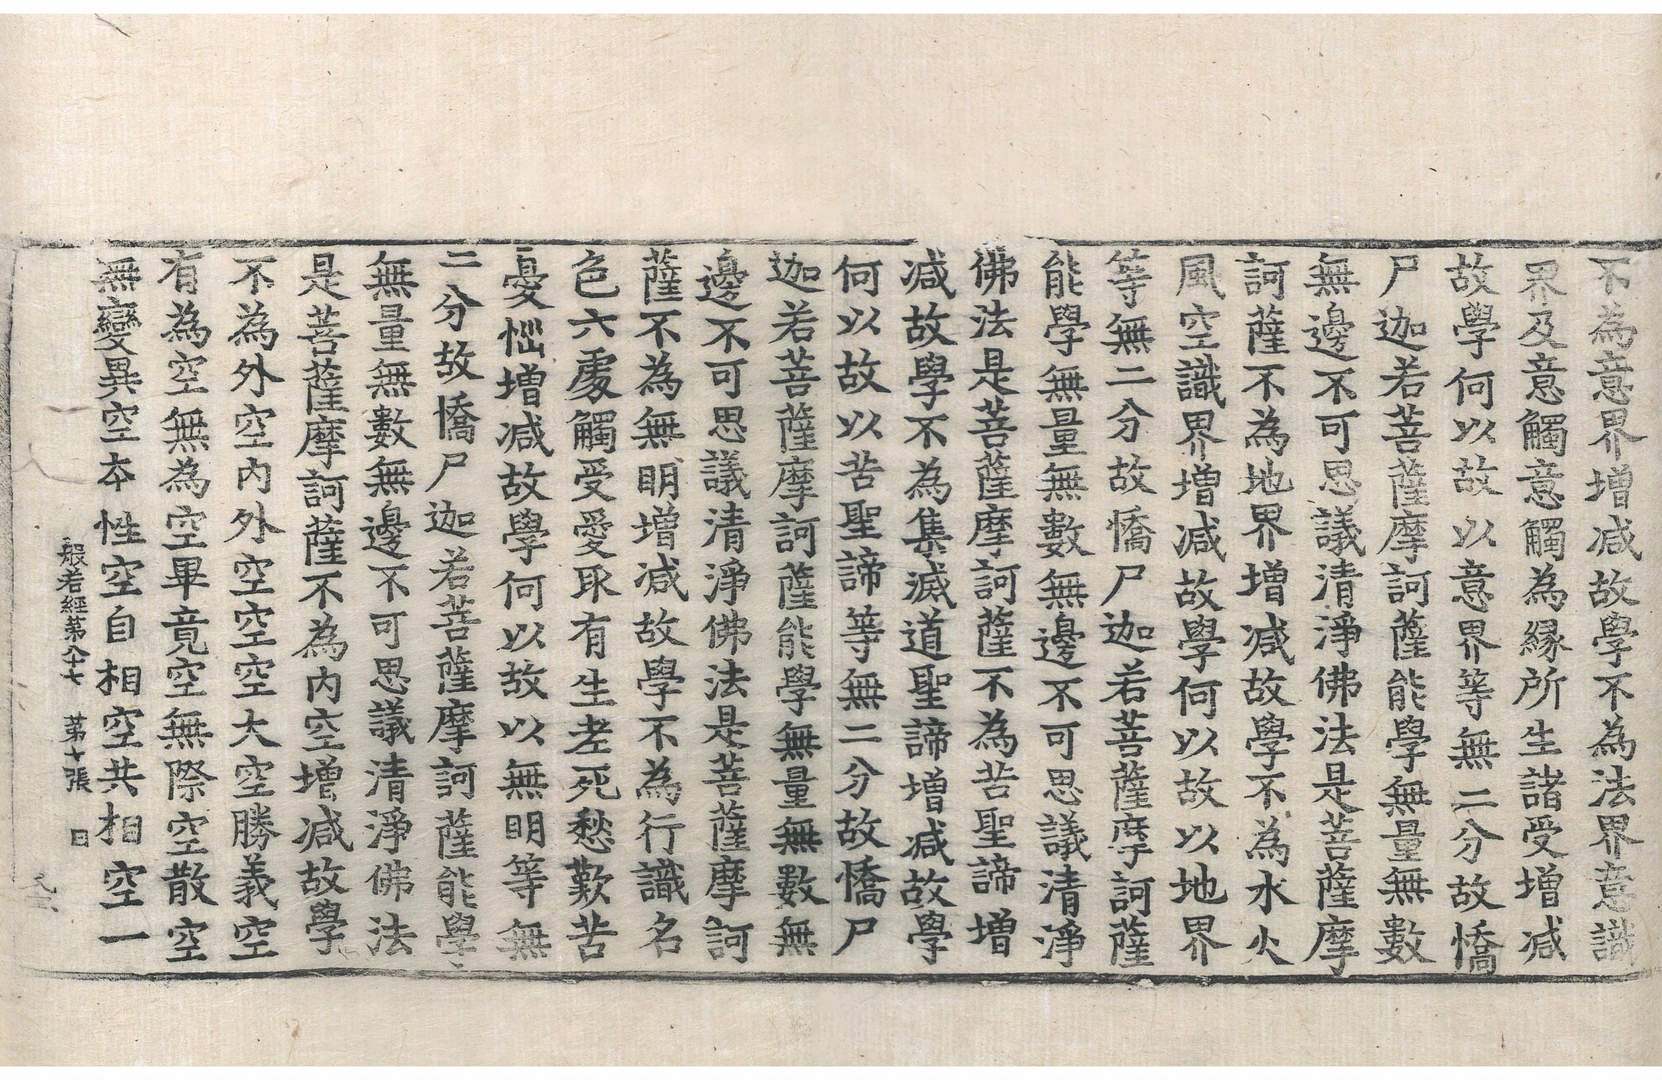 不為意界增減故學不為法界意識
界及意觸意觸為緣所生諸受增減
故學何以故以意界等無二分故憍
尸迦若菩薩摩訶薩能學無量無數
無邊不可思議清淨佛法是菩薩摩
訶薩不為地界增減故學不為水火
風空識界增減故學何以故以地界
等無二分故憍尸迦若菩薩摩訶薩
能學無量無數無邊不可思議清淨
佛法是菩薩摩訶薩不為苦聖諦增
減故學不為集滅道聖諦增減故學
何以故以苦聖諦等無二分故憍尸
迦若菩薩摩訶薩能學無量無數無
邊不可思議清淨佛法是菩薩摩訶
薩不為無明增減故學不為行識名
色六處觸受愛取有生老死愁歎苦
憂惱增減故學何以故以無明等無
二分故憍尸迦若菩薩摩訶薩能學
無量無數無邊不可思議清淨佛法
是菩薩摩訶薩不為內空增減故學
不為外空內外空空空大空勝義空
有為空無為空畢竟空無際空散空
無變異空本性空自相空共相空一
般若經第八十七 第十張 日